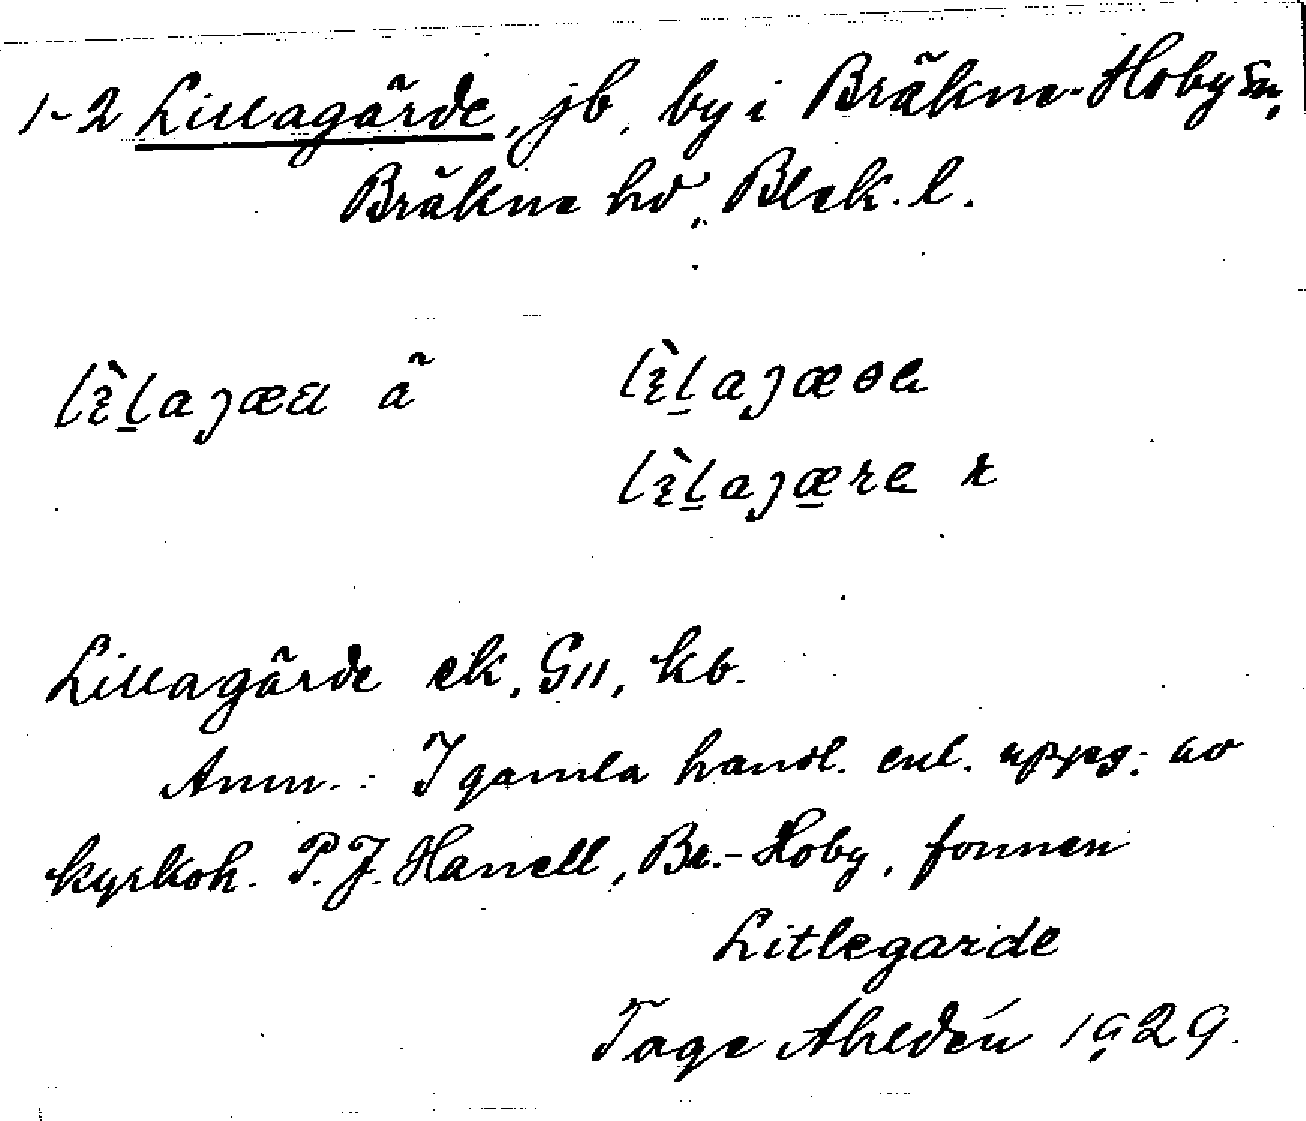 1-2 Lillagärde, jb, by i Bräkne-Hoby sn,
Bräkne hd, Blek. l.
Lillagärde ek, GII, kb.
Anm.: I gamla handl. enl. uppg. av
kyrkoh. P. J. Hanell, Br.-Hoby, formen
Litlegarde
Tage Ahldén 1929.